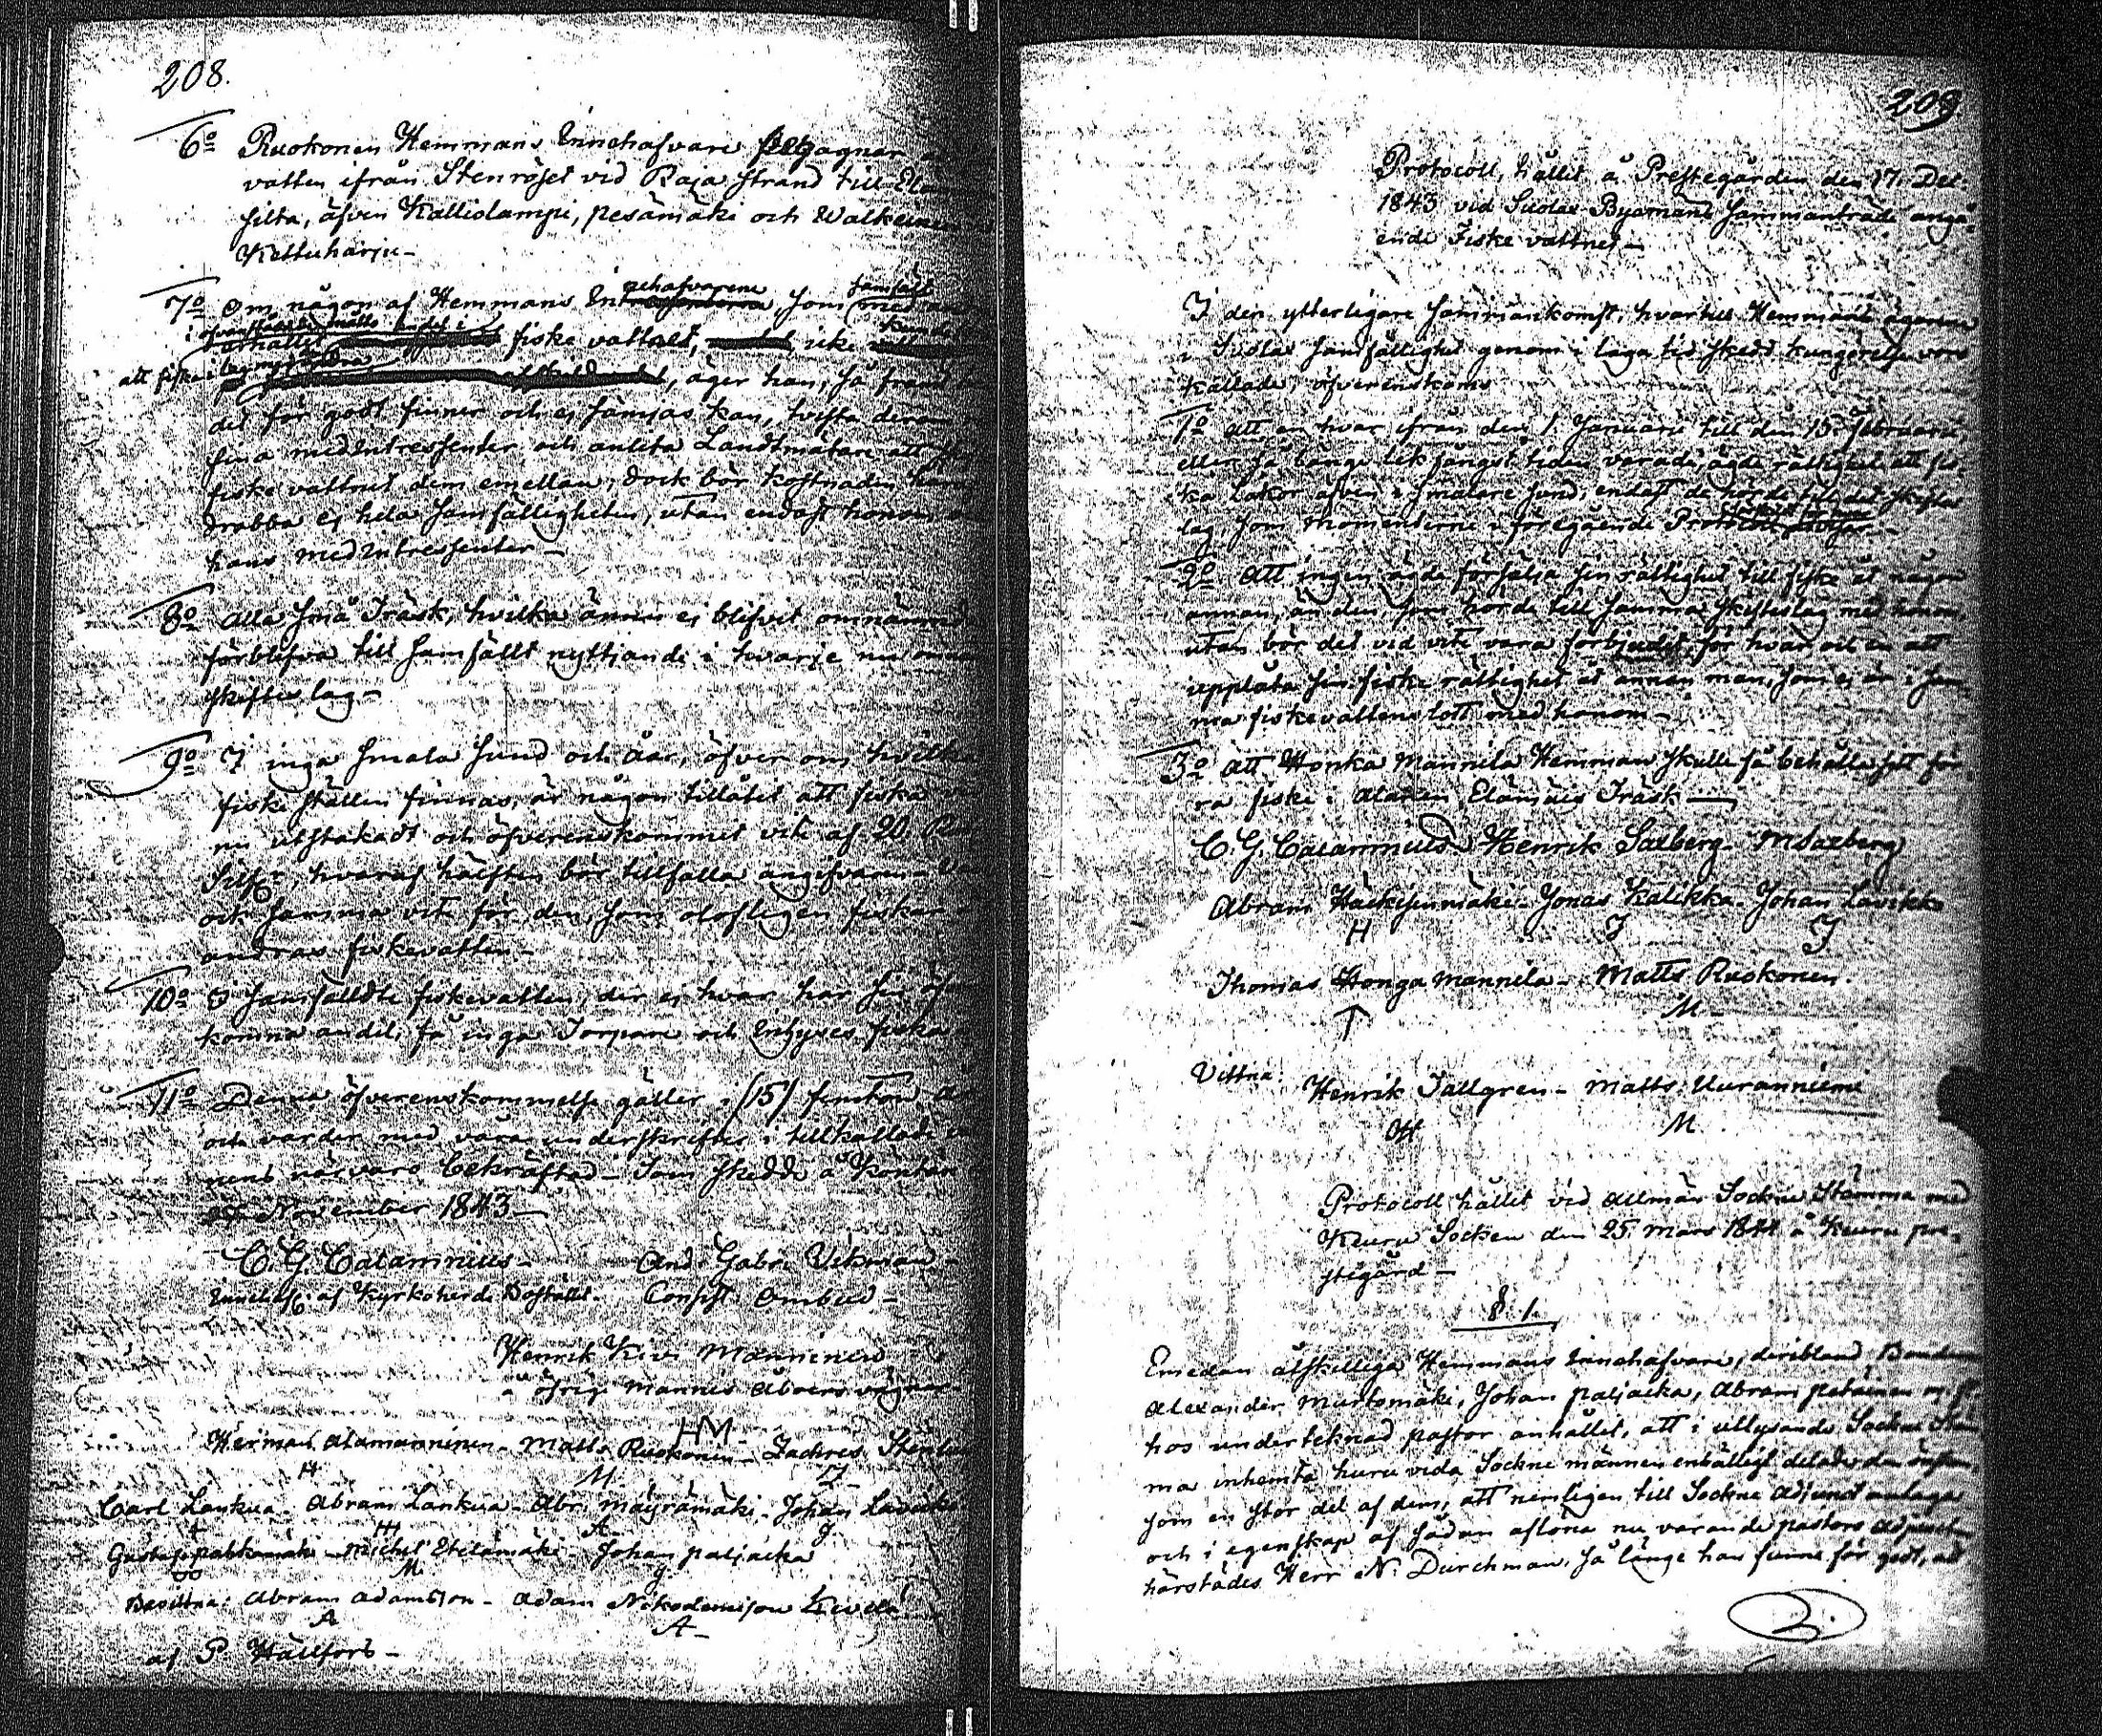 208.
6o Ruokonen Hemmans Innehafvare begagnar
vatten ifrån Stenröset vid Raja strand till
silta, äfven Kalliolampi, pesämäki och Walkeinen
Kettuharju-
7o Om någon af Hemmans Innehafvarene, som samfält
fiske vattnet, icke kunde
att fiske i lag, äger han, så framt
det för godt finner och ej sämjas kan, tvista derom
sina medIntressenter, och anlita Landtmätare att
fiske vattnet dem emellan, dock bör kostnaden
drabba ej hela Samfälligheten, utan endast honom
hans medIntressenter-
8o Alla små Träsk, hvilka ännu ej blifvit omnämnda
förblifva till samfällt nyttjande i hvarje nu
skiftes lag-
9o I inga smala sund och åar, öfver om hvilka
fiske ställen finnas, är någon tillåtet att fiska
nu utstakadt och öfverenskommet vite af 20 Rub
Silfr, hvaraf hälften bör tillfalla angifvaren-
och samma vite för den, som olofligen fiskar
andras fiskevatten-
10o I samfälldte fiskevatten, der ej hvar har sin
komna andel, få inga Torpare och Inhyses fiska
11o Denna öfverenskommelse gäller i (15) femton år
och varder med våra underskrifter i tillkallade
nens närvaro bekräftad- Som skedde å
November 1843-
C. G. Calamnius- And. Gabr. Vikman-
Innehaf. af Kyrkoherde Bostället. Consist. Ombud-
Henrik Kivi Manninen
å öfrige Mannes Åboers vägnar-
HM-
Herman Alamanninen- Matts Ruokonen- Zachres
H M. Z-
Carl Lankua- Abram Lankua- Abr. Mäyrämäki- Johan
+ A- J
Gustaf pahkamäki- Michel Etelämäki- Johan paljacka
M J
Bevittna: Abram Adamsson- Adam Nikodemisson Kivelä
A A-
af P. Hällfors-
209
Protocoll, hållit å Prestegården den 17. Dec.
1843 vid Suolax Byamäns sammanträde angå-
ende Fiske vattnet-
I den ytterligare sammankomst, hvartill Hemmans ägarene
i Suolax samfällighet genom i laga tid skedd kungörelse voro
kallade, öfverenskoms
1o att en hvar ifrån den 1. Januarii till den 15. Februarii,
eller så länge lek fångst tiden varade, ägde rättighet att fis-
ka Lakor äfven i smalare sund, endast de hörde till det skiftes
lag, som momenterne i föregående Protocoll
2o Att ingen ägde försälja sin rättighet till fiske åt någon
annan, än den, som hörde till samma skifteslag med honom,
utan bör det vid vite vara förbjudet för hvar och en att
uppläta sin fiske rättighet åt annan man, som ej är i sam-
ma fiskevattens lott med honom-
3o Att Honka Mannila Hemman skulle få behålla sitt för-
ra fiske i Alanen Elämäis Träsk-
C. G. Calamnius Henrik Salberg- M Salberg
Abram Häckisenmäki- Jonas Kalikka- Johan Lavikko
H J J
Thomas Honga Mannila- Matts Ruokonen.
↑ M-
Vittna: Henrik Tallgren- Matts Uuranniemi
M
Protocoll hållet vid Allmän Sockne Stämma med
Keuru Socken den 25. Mars 1844 å Keuru pre-
stegård-
§. 1.
Emedan åtskilliga Hemmans Innehafvare, deribland
Alexander Murtomäki, Johan paljacka, Abram
hos undertecknad pastor anhållit, att i utlysande Sockne Stäm
ma inhemta huru vida Sockne männen enhälligt delade den önskan,
som en stor del af dem, att nemligen till Sockne Adjunct antaga
och i egenskap af sådan aflöna nu varande pastors Adjuncten
härstädes Herr N. Durchman, så länge han funne för godt, att